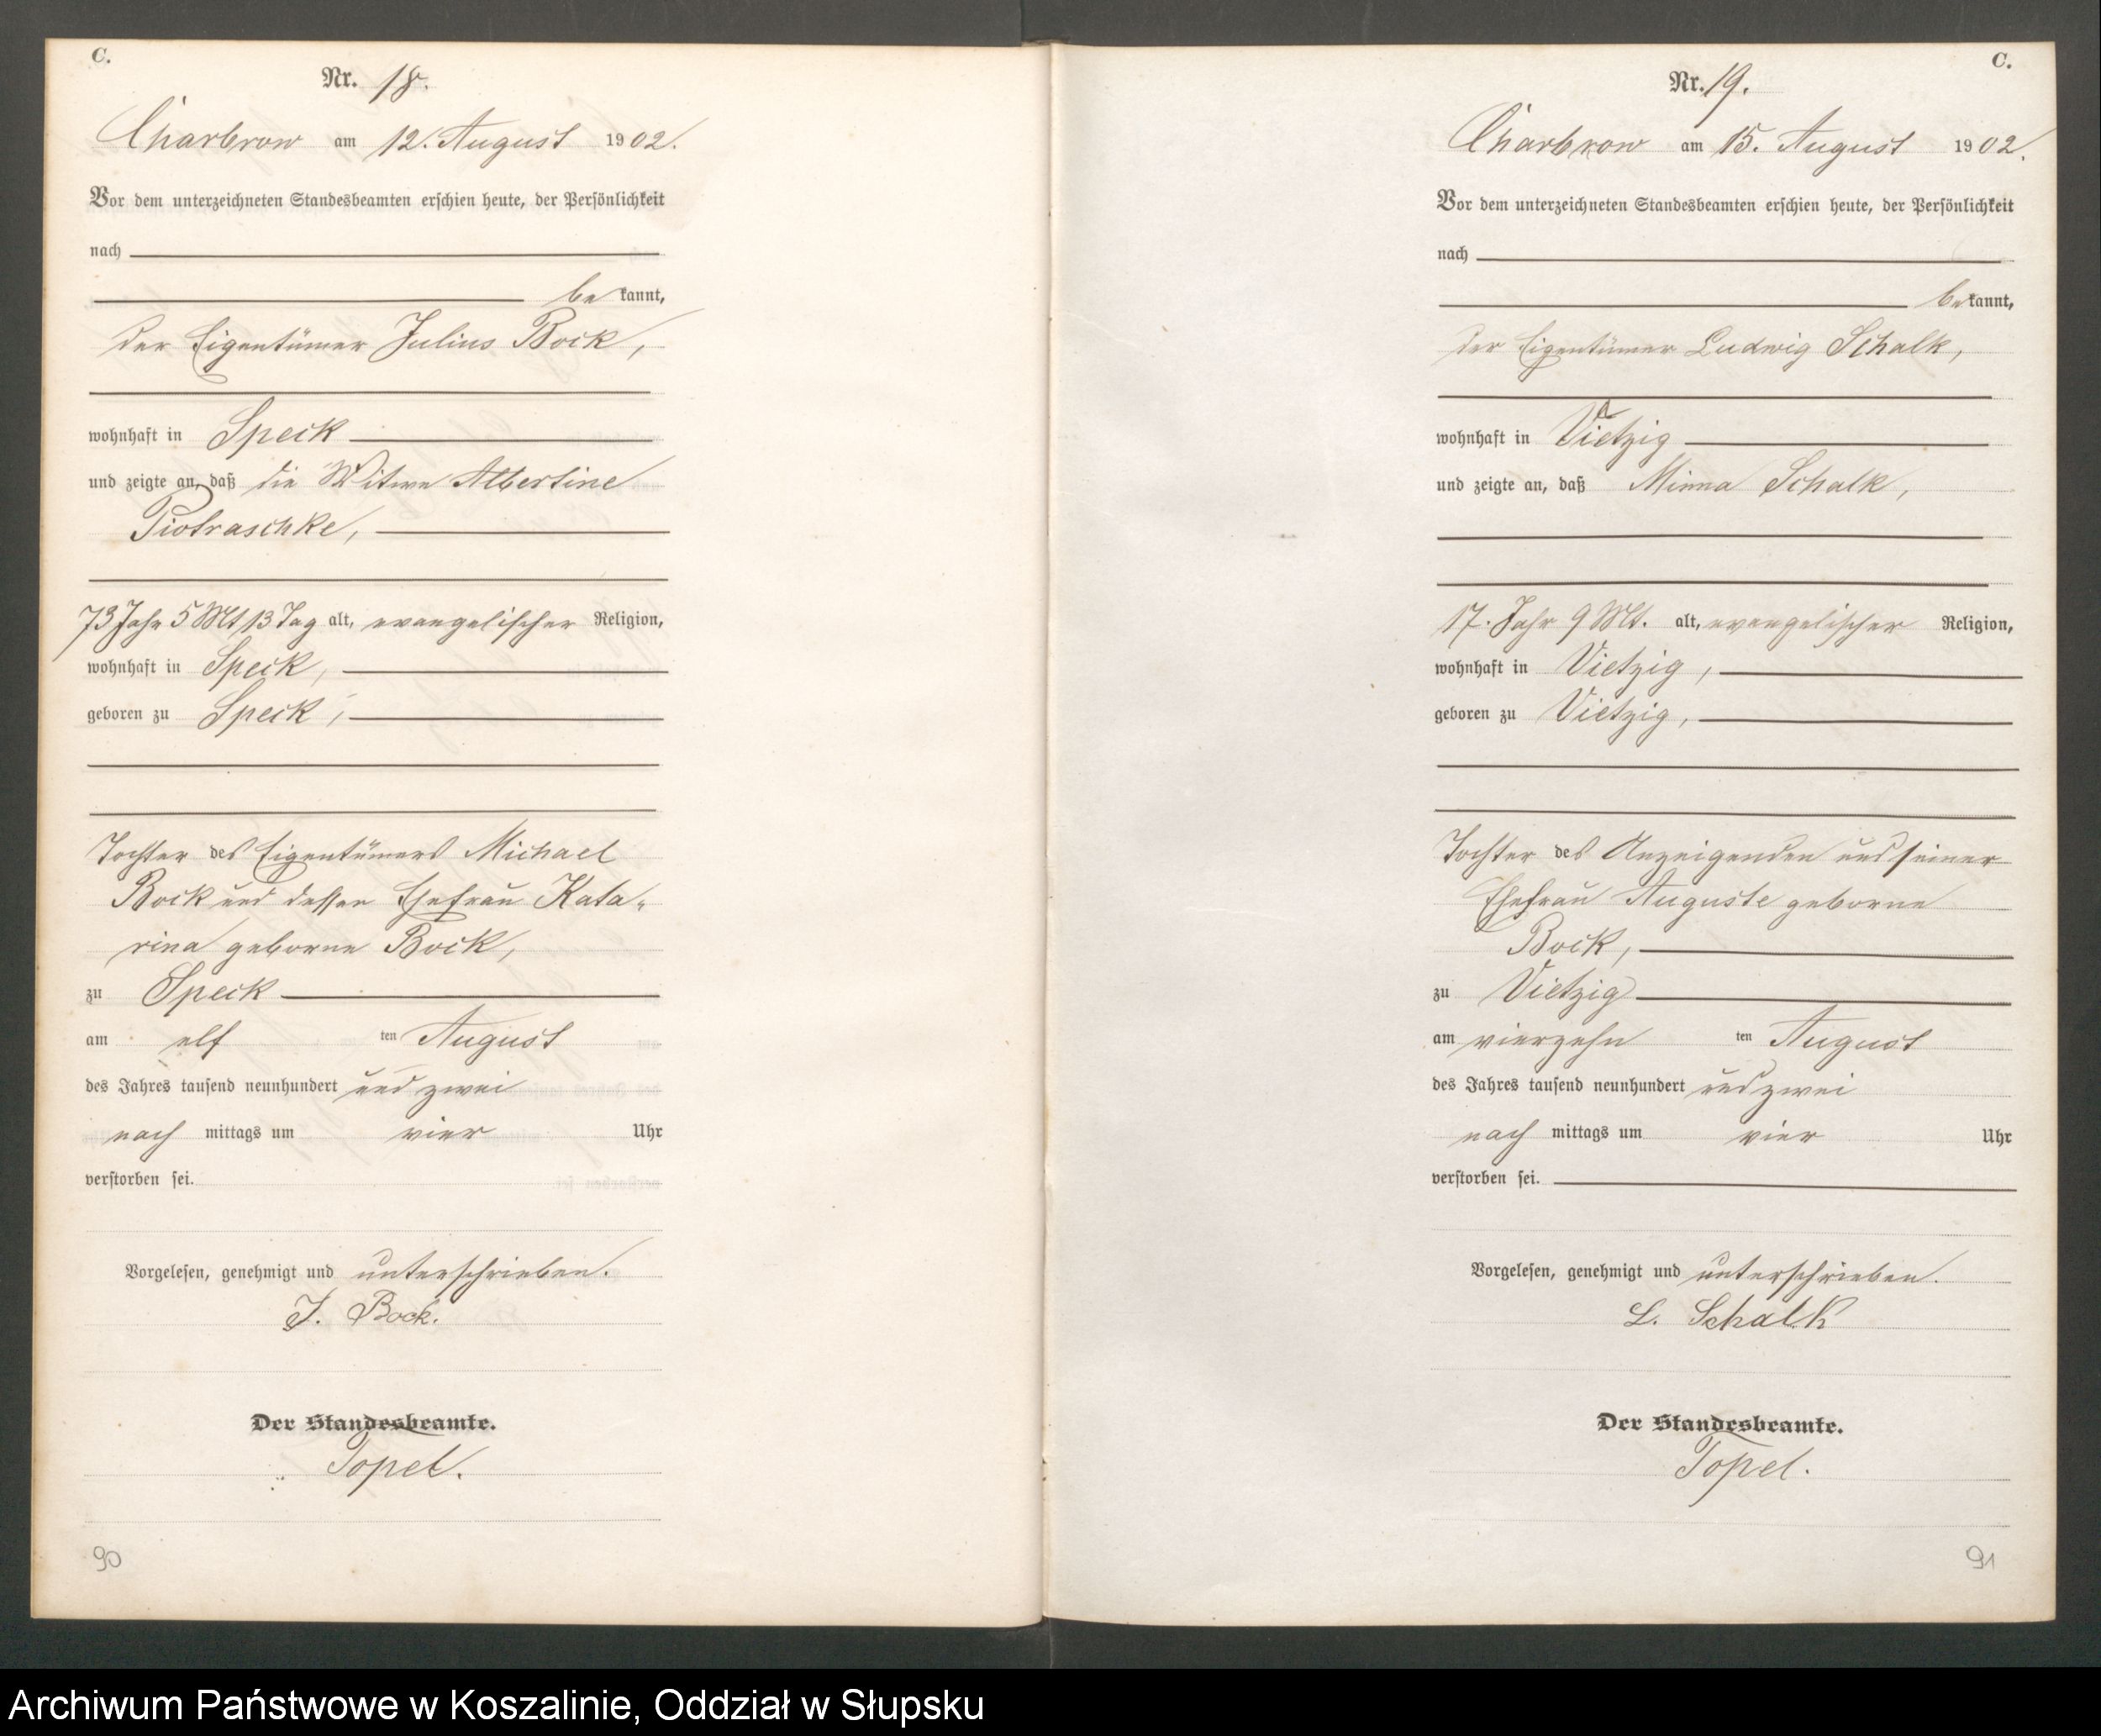 C.
Nr. 18.
Charbrow am 12. August 1902.
Vor dem unterzeichneten Standesbeamten erschien heute, der Persönlichkeit
nach
be kannt,
der Eigentümer Julius Bock,
wohnhaft in Speck
und zeigte an, daß die Witwe Albertine
Piotraschke,
73 Jahr 5 Mt 13 Tag alt, evangelischer Religion,
wohnhaft in Speck,
geboren zu Speck,
Tochter des Eigentümers Michael
Bock und dessen Ehefrau Kata-
rina geborne Bock,
zu Speck
am elf ten August
des Jahres tausend neunhundert und zwei
nach mittags um vier Uhr
verstorben sei.
Vorgelesen, genehmigt und unterschrieben.
J. Bock.
Der Standesbeamte.
Topel.
90
C.
Nr. 19.
Charbrow am 15. August 1902.
Vor dem unterzeichneten Standesbeamten erschien heute, der Persönlichkeit
nach
be kannt,
der Eigentümer Ludwig Schalk,
wohnhaft in Vietzig
und zeigte an, daß Minna Schalk,
17. Jahr 9 Mt. alt, evangelischer Religion,
wohnhaft in Vietzig,
geboren zu Vietzig,
Tochter des Anzeigenden und seiner
Ehefrau Auguste geborne
Bock,
zu Vietzig
am vierzehn ten August
des Jahres tausend neunhundert und zwei
nach mittags um vier Uhr
verstorben sei.
Vorgelesen, genehmigt und unterschrieben.
L. Schalk
Der Standesbeamte.
Topel.
91
Archiwum Państwowe w Koszalinie, Oddział w Słupsku